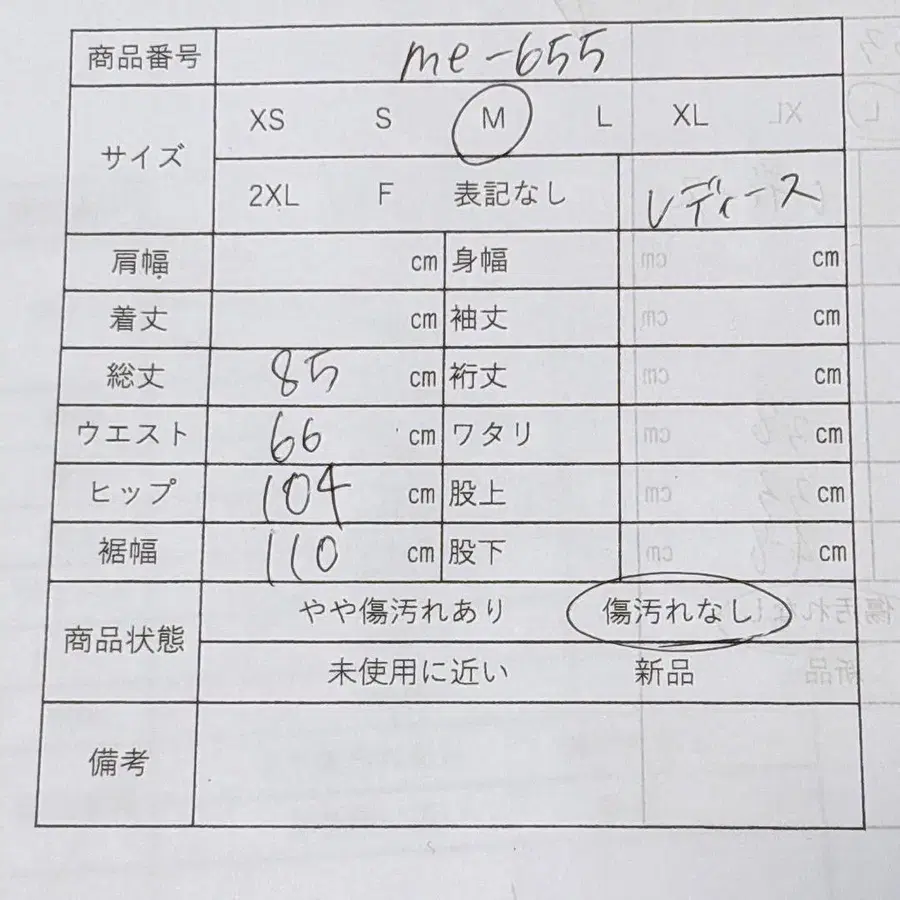 商品番号 me-655
サイズ XS S M L XL
2XL F 表記なし レディース
肩幅 cm 身幅 cm
着丈 cm 袖丈 cm
総丈 85 cm 裄丈 cm
ウエスト 66 cm ワタリ cm
ヒップ 104 cm 股上 cm
裾幅 110 cm 股下 cm
商品状態 やや傷汚れあり 傷汚れなし
未使用に近い 新品
備考